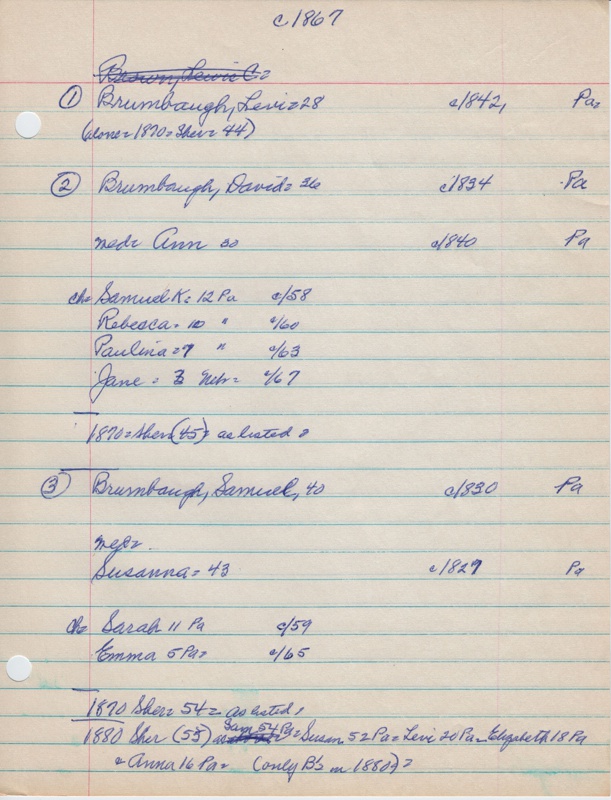 c1867
Brown, Lewis C=
① Brumbaugh, Levi=28 c1842, Pa=
(alone=1870=Sher= 44)
② Brumbaugh, David= 36 c1834 Pa
med= Ann 30 c1840 Pa
ch= Samuel K= 12 Pa c/58
Rebecca= 10 " c/60
Paulina=7 " c/63
Jane = 3 Neb= c/67
1870=Sher(45)= as listed=
③ Brumbaugh, Samuel, 40 c1830 Pa
med=
Susanna= 43 c1827 Pa
ch= Sarah 11 Pa c/59
Emma 5 Pa= c/65
1870 Sher= 54= as listed,
1880 Sher (55) Sam 54 Pa=Susan 52 Pa=Levi 20 Pa=Elizabeth 18 Pa
& Anna 16 Pa= (only B's in 1880)=